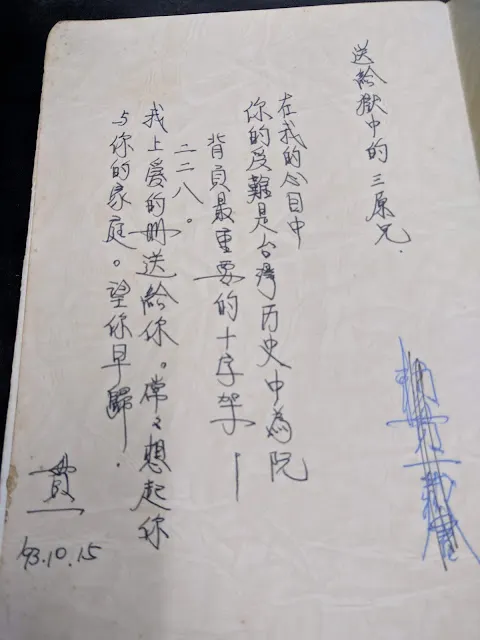 送給獄中的三原兄.
在我的心目中
你的受難是台灣历史中為阮
背負最重要的十字架—
二二八。
我上爱的冊送給你。常々想起你
与你的家庭。望你早歸.
'93.10.15